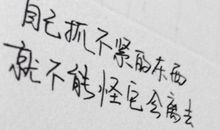 自己抓不紧的东西
就不能怪它会离去